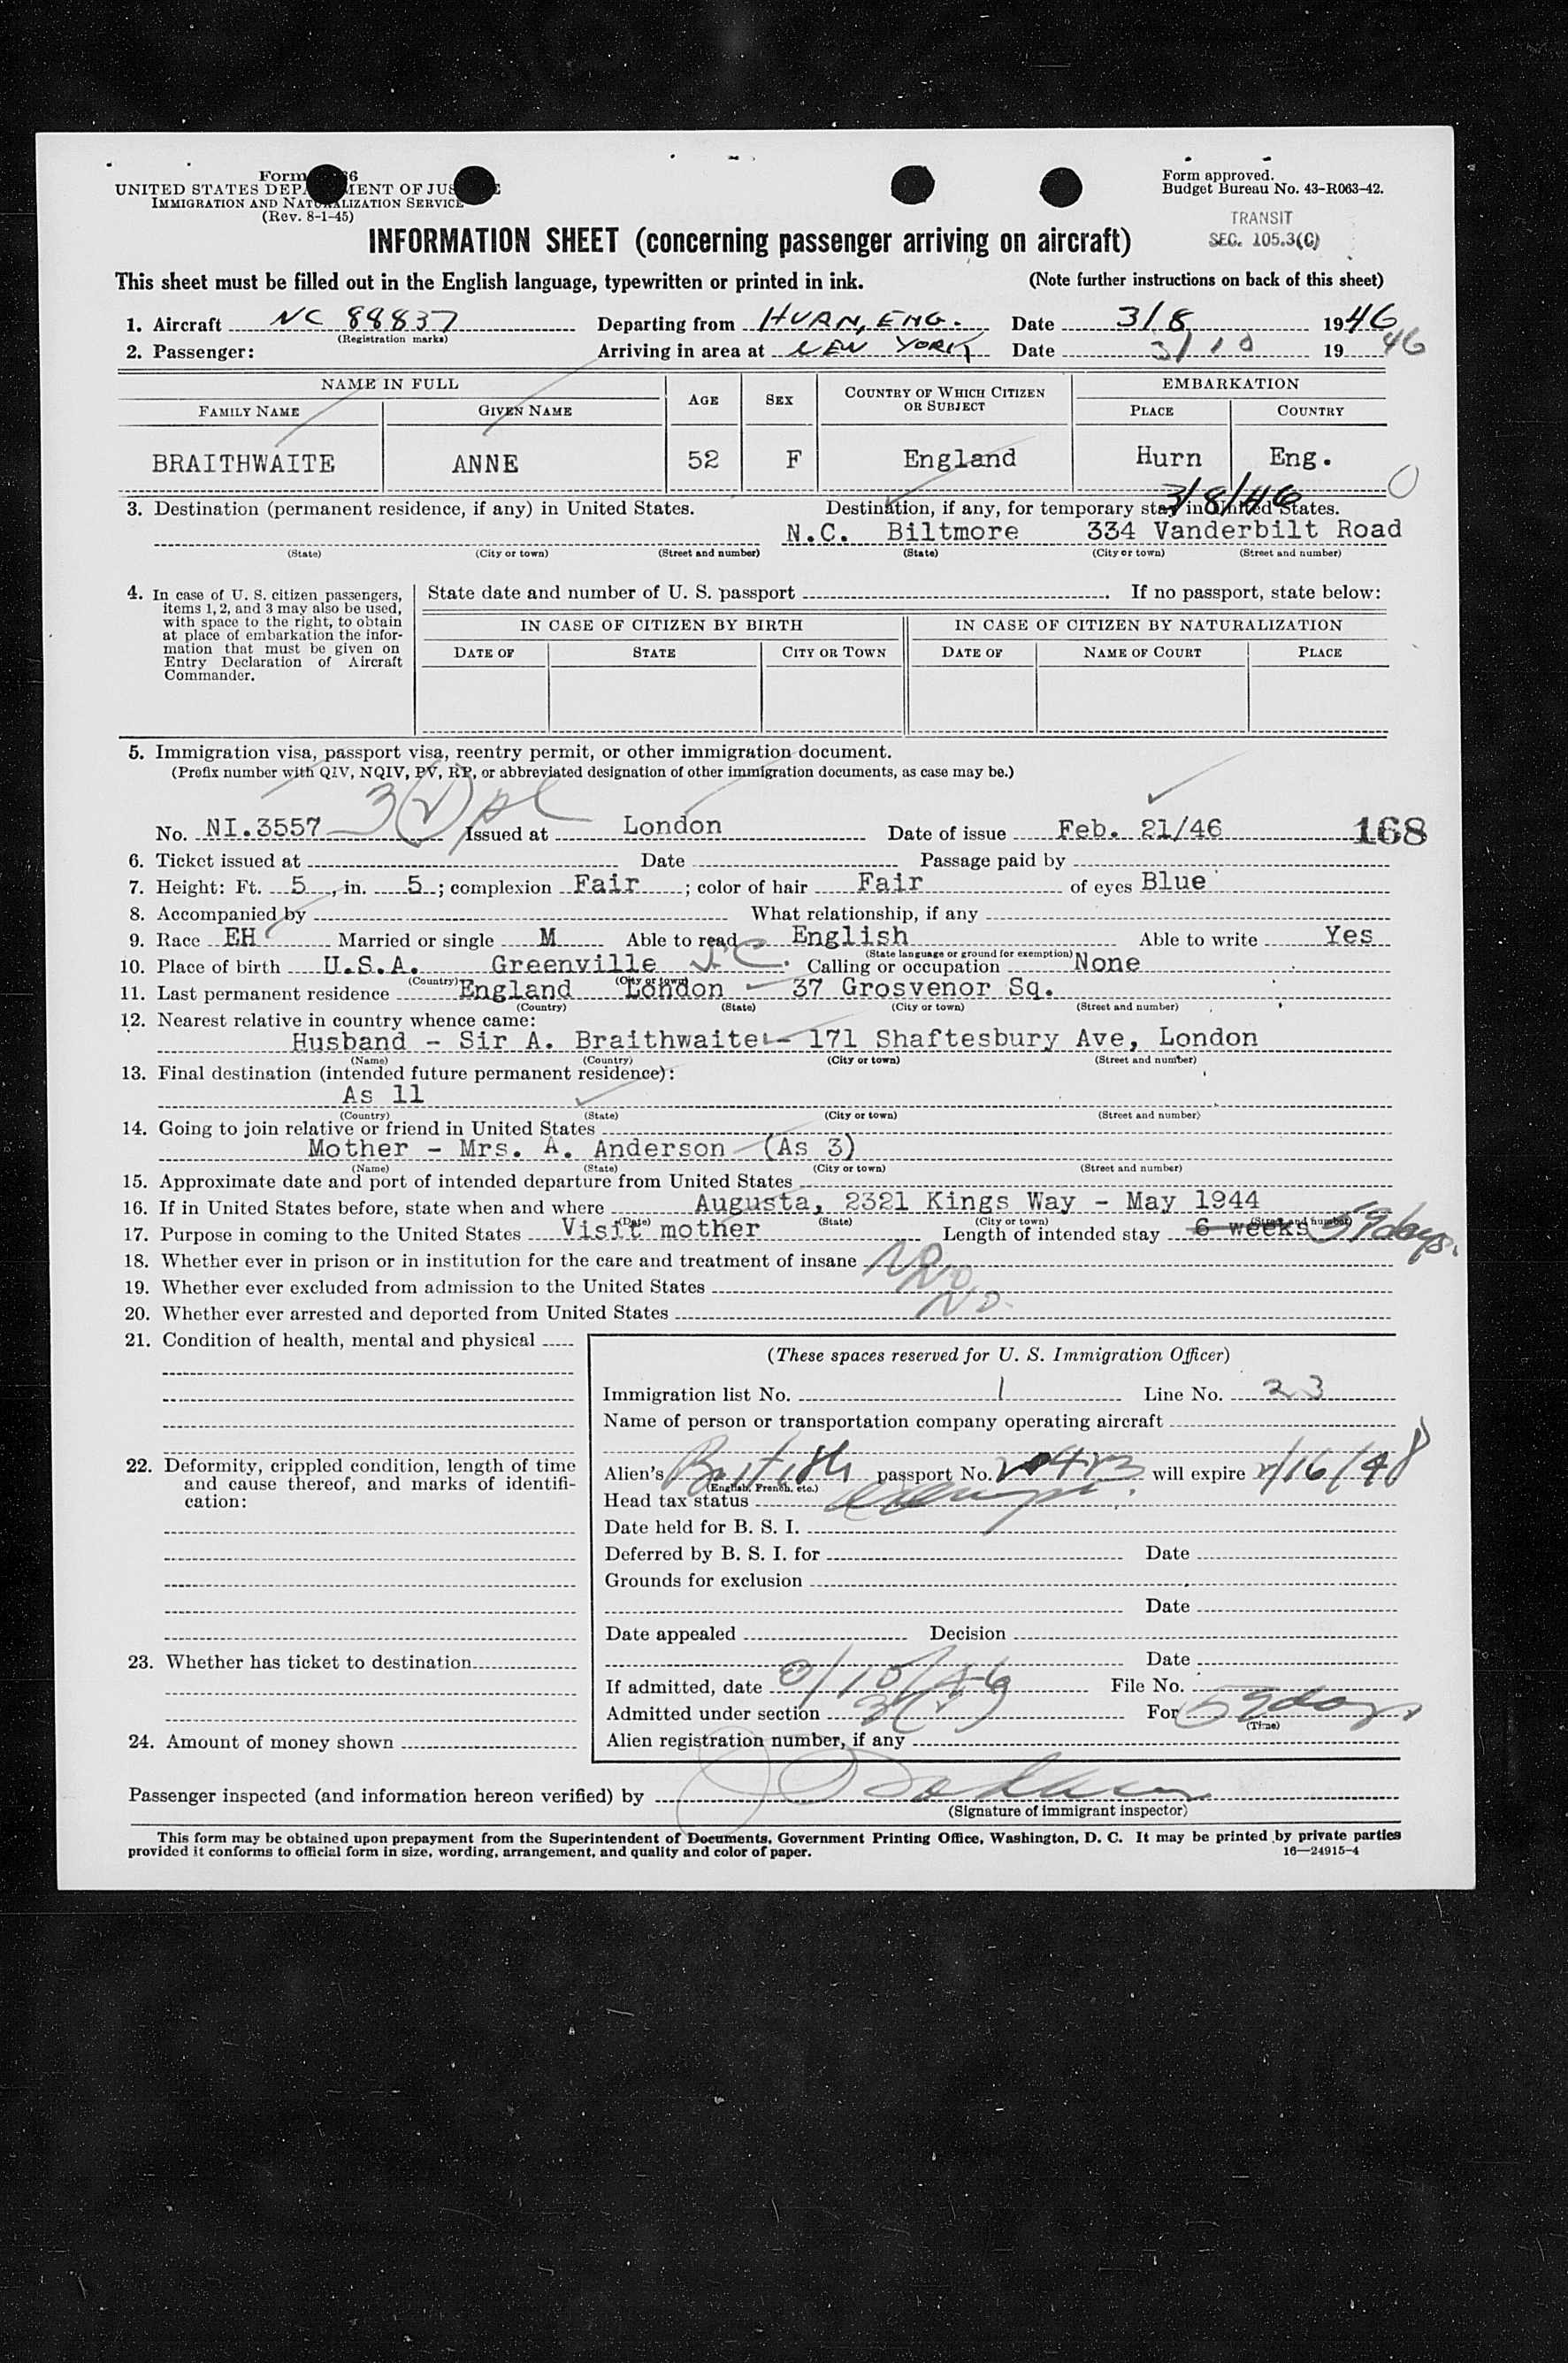 Form 6
UNITED STATES DEPA MENT OF JUS E
IMMIGRATION AND NATURALIZATION SERVICE
(Rev. 8-1-45)
Form approved.
Budget Bureau No. 43-R063-42.
TRANSIT
SEC. 105.3(C)
INFORMATION SHEET (concerning passenger arriving on aircraft)
This sheet must be filled out in the English language, typewritten or printed in ink. (Note further instructions on back of this sheet)
1. Aircraft NC 88837 Departing from HURN, ENG. Date 3/8 1946
(Registration marks)
2. Passenger: Arriving in area at NEW YORK Date 3/10 19 46
NAME IN FULL AGE SEX COUNTRY OF WHICH CITIZEN OR SUBJECT EMBARKATION
FAMILY NAME GIVEN NAME PLACE COUNTRY
BRAITHWAITE ANNE 52 F England Hurn Eng.
3/8/46
3. Destination (permanent residence, if any) in United States. Destination, if any, for temporary stay in United States.
N.C. Biltmore 334 Vanderbilt Road
(State) (City or town) (Street and number) (State) (City or town) (Street and number)
4. In case of U. S. citizen passengers, items 1, 2, and 3 may also be used, with space to the right, to obtain at place of embarkation the information that must be given on Entry Declaration of Aircraft Commander.
State date and number of U. S. passport . If no passport, state below:
IN CASE OF CITIZEN BY BIRTH IN CASE OF CITIZEN BY NATURALIZATION
DATE OF STATE CITY OR TOWN DATE OF NAME OF COURT PLACE
5. Immigration visa, passport visa, reentry permit, or other immigration document.
(Prefix number with QIV, NQIV, PV, RP, or abbreviated designation of other immigration documents, as case may be.)
No. NI.3557 3(2) Issued at London Date of issue Feb. 21/46 168
6. Ticket issued at Date Passage paid by
7. Height: Ft. 5, in. 5; complexion Fair; color of hair Fair of eyes Blue
8. Accompanied by What relationship, if any
9. Race EH Married or single M Able to read English Able to write Yes
(State language or ground for exemption)
10. Place of birth U.S.A. Greenville S.C. Calling or occupation None
(Country) (City or town)
11. Last permanent residence England London 37 Grosvenor Sq.
(Country) (State) (City or town) (Street and number)
12. Nearest relative in country whence came:
Husband - Sir A. Braithwaite - 171 Shaftesbury Ave, London
(Name) (Country) (City or town) (Street and number)
13. Final destination (intended future permanent residence):
As 11
(Country) (State) (City or town) (Street and number)
14. Going to join relative or friend in United States
Mother - Mrs. A. Anderson (As 3)
(Name) (State) (City or town) (Street and number)
15. Approximate date and port of intended departure from United States
16. If in United States before, state when and where Augusta, 2321 Kings Way - May 1944
(Date) (State) (City or town) (Street and number)
17. Purpose in coming to the United States Visit mother Length of intended stay 6 weeks 59 days.
18. Whether ever in prison or in institution for the care and treatment of insane No
19. Whether ever excluded from admission to the United States No
20. Whether ever arrested and deported from United States No.
21. Condition of health, mental and physical
(These spaces reserved for U. S. Immigration Officer)
Immigration list No. 1 Line No. 23
Name of person or transportation company operating aircraft
22. Deformity, crippled condition, length of time and cause thereof, and marks of identification:
Alien's British passport No. will expire 2/16/48
(English, French, etc.)
Head tax status exempt.
Date held for B. S. I.
Deferred by B. S. I. for Date
Grounds for exclusion
Date
Date appealed Decision
23. Whether has ticket to destination
Date
If admitted, date 3/10/46 File No.
Admitted under section 3(2) For 59 days
(Time)
24. Amount of money shown
Alien registration number, if any
Passenger inspected (and information hereon verified) by
(Signature of immigrant inspector)
This form may be obtained upon prepayment from the Superintendent of Documents, Government Printing Office, Washington, D. C. It may be printed by private parties
provided it conforms to official form in size, wording, arrangement, and quality and color of paper. 16—24915-4